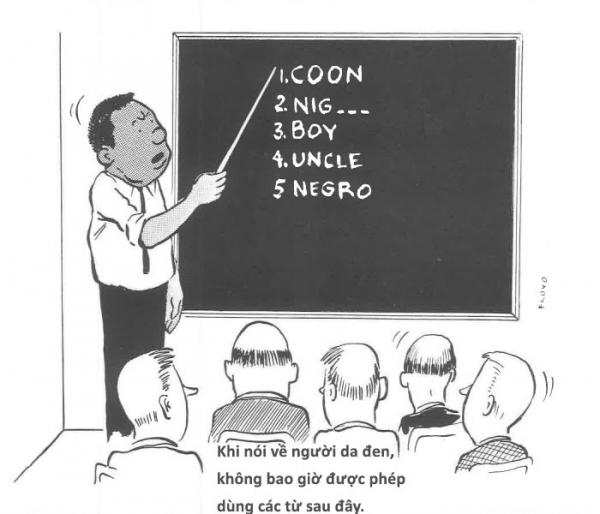 1. COON
2. NIG___
3. BOY
4. UNCLE
5 NEGRO
FLOYD
Khi nói về người da đen,
không bao giờ được phép
dùng các từ sau đây.